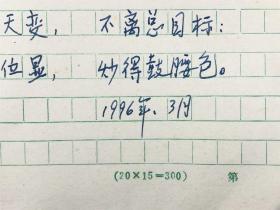 天变，不离总目标：
位显，炒得鼓腰包。
1996年、3月
(20×15=300) 第